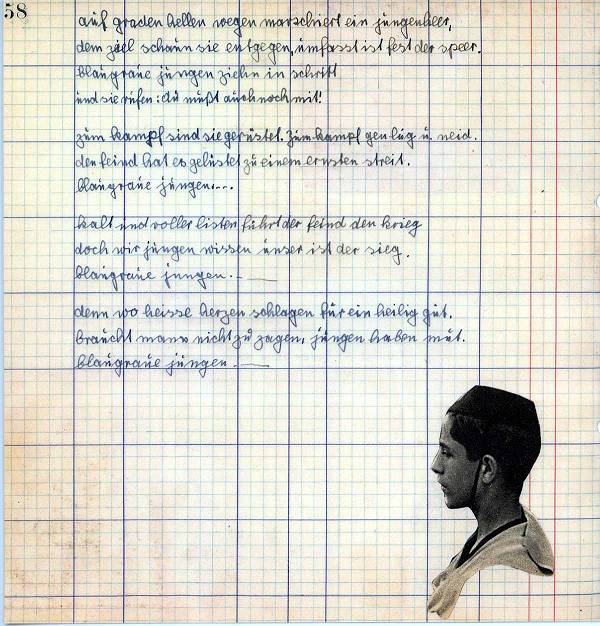 58
auf graden hellen wegen marschiert ein jungenheer,
dem ziel schaun sie entgegen, umfasst ist fest der speer.
blaugraue jungen ziehn in schritt
und sie rufen: du mußt auch noch mit!
zum kampf sind sie gerüstet. zum kampf gen lug u. neid.
den feind hat es gelüstet zu einem ernsten streit.
blaugraue jungen....
kalt und voller listen führt der feind den krieg
doch wir jungen wissen unser ist der sieg.
blaugraue jungen..
denn wo heisse herzen schlagen für ein heilig gut.
braucht mann nicht zu zagen, jungen haben mut.
blaugraue jungen.